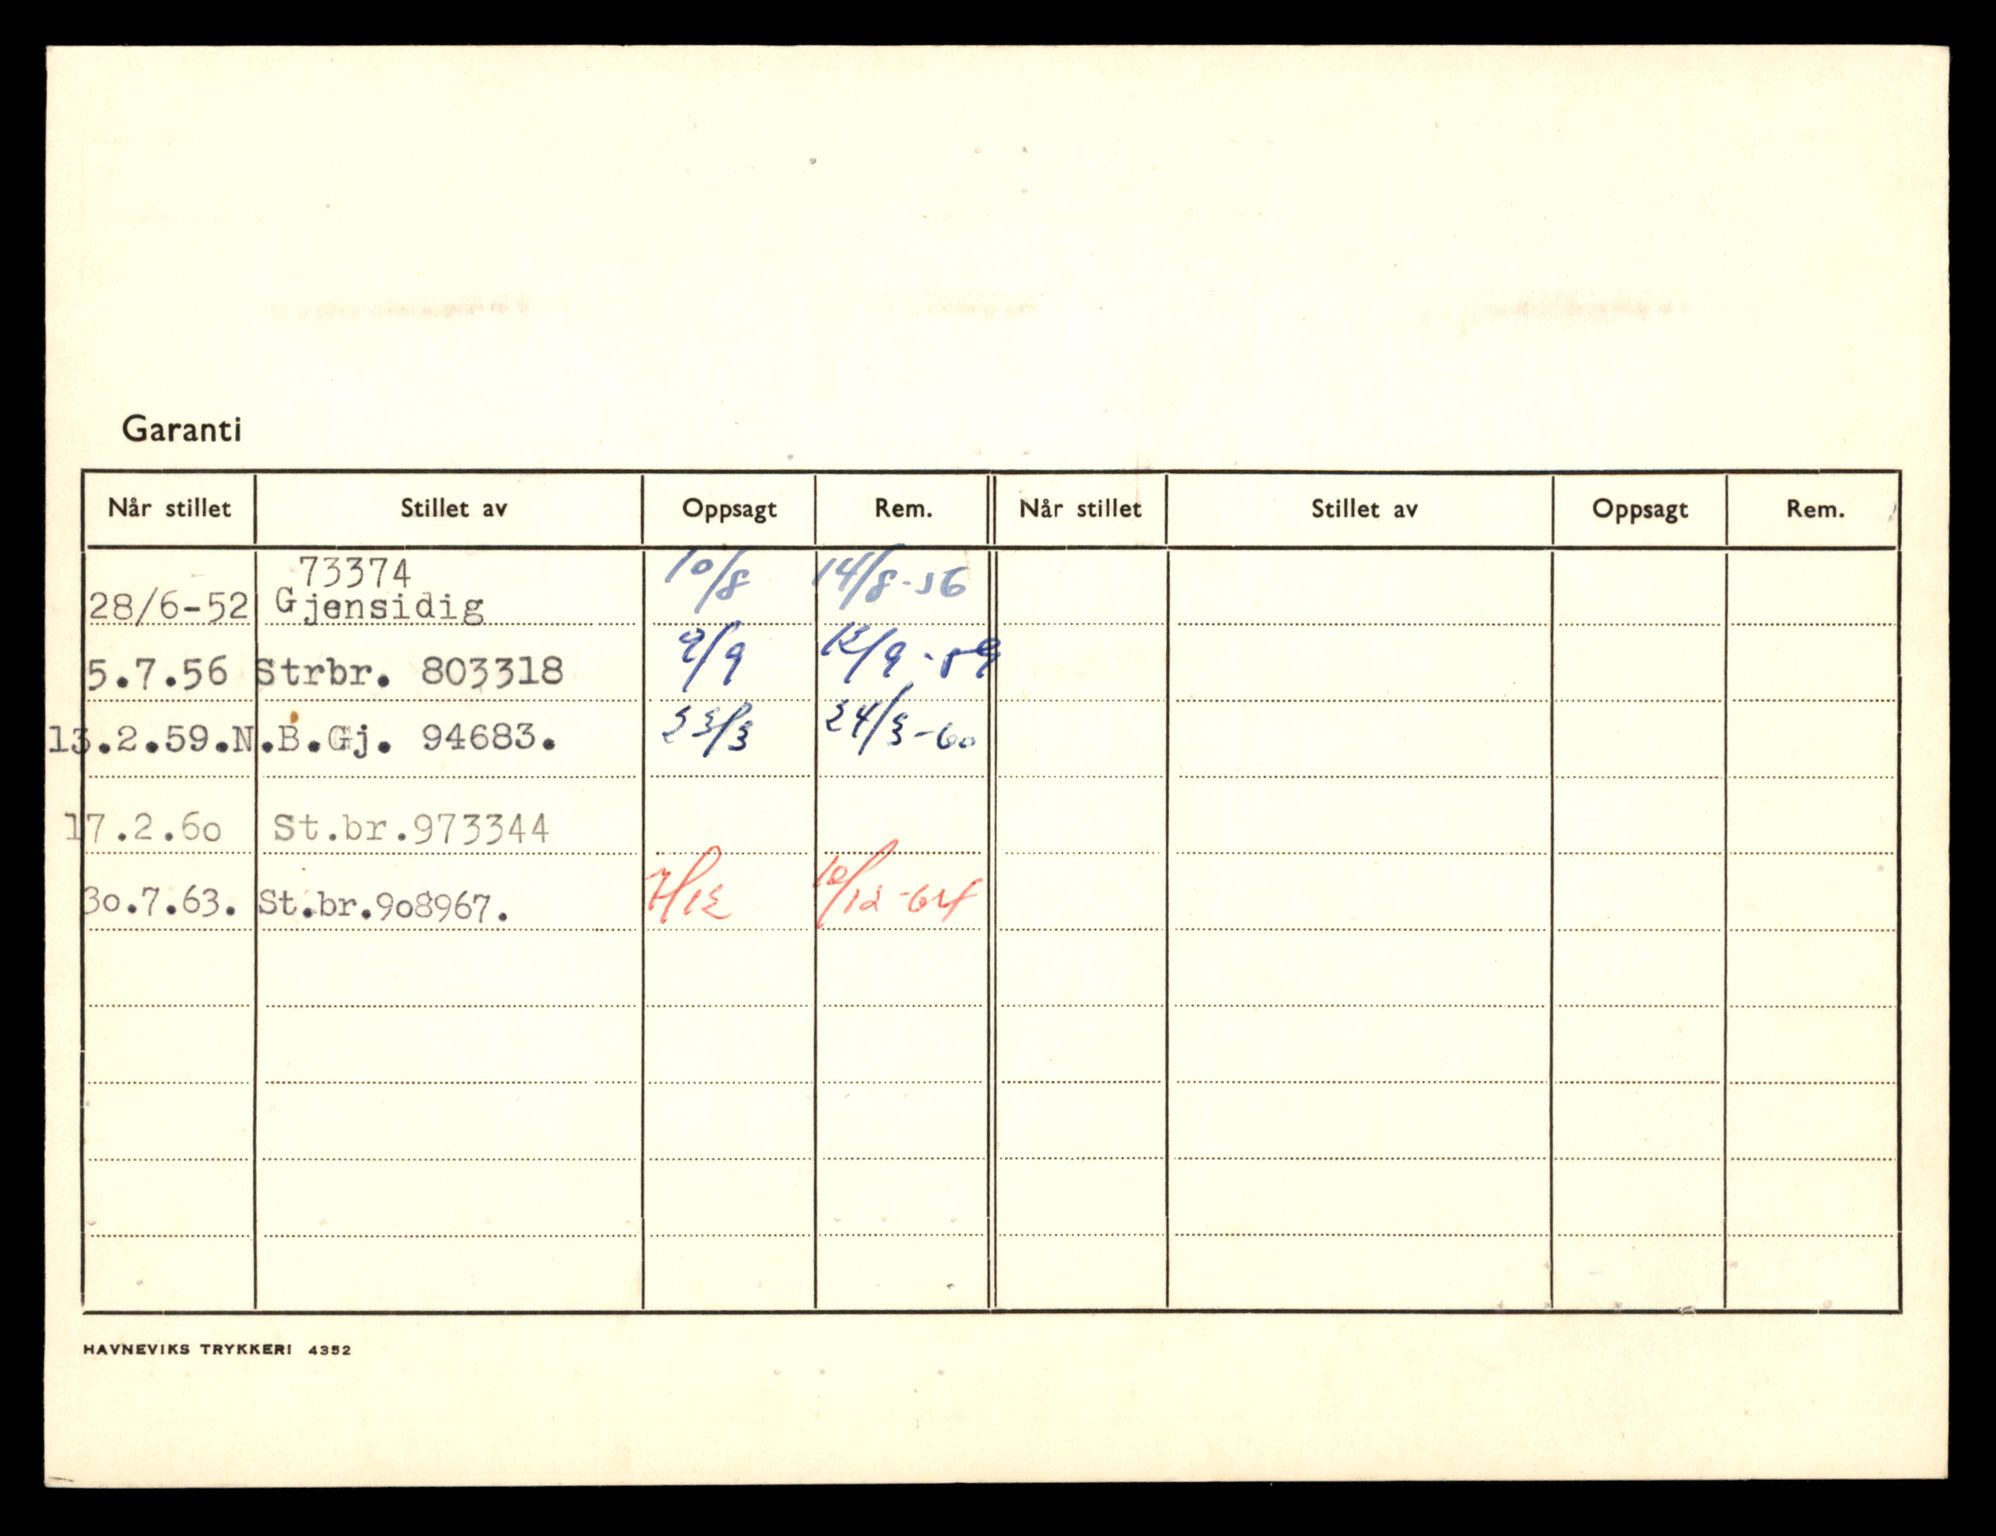 Garanti
Når stillet Stillet av Oppsagt Rem. Når stillet Stillet av Oppsagt Rem.
73374 10/8 14/8-56
28/6-52 Gjensidig
5.7.56 Strbr. 803318 9/9 12/9-59
13.2.59.N.B.Gj. 94683. 23/3 24/3-60
17.2.6o St.br.973344
3o.7.63. St.br.9o8967. 7/12 10/12-64
HAVNEVIKS TRYKKERI 4352